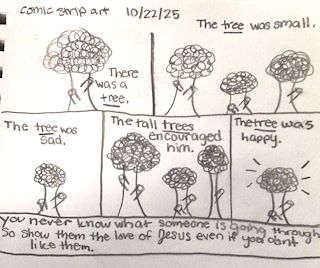 comic strip art 10/22/25
There
was a
tree.
The tree was small.
The tree was
sad.
The tall trees
encouraged
him.
The tree was
happy.
you never know what someone is going through
So show them the love of Jesus even if you dont
like them.